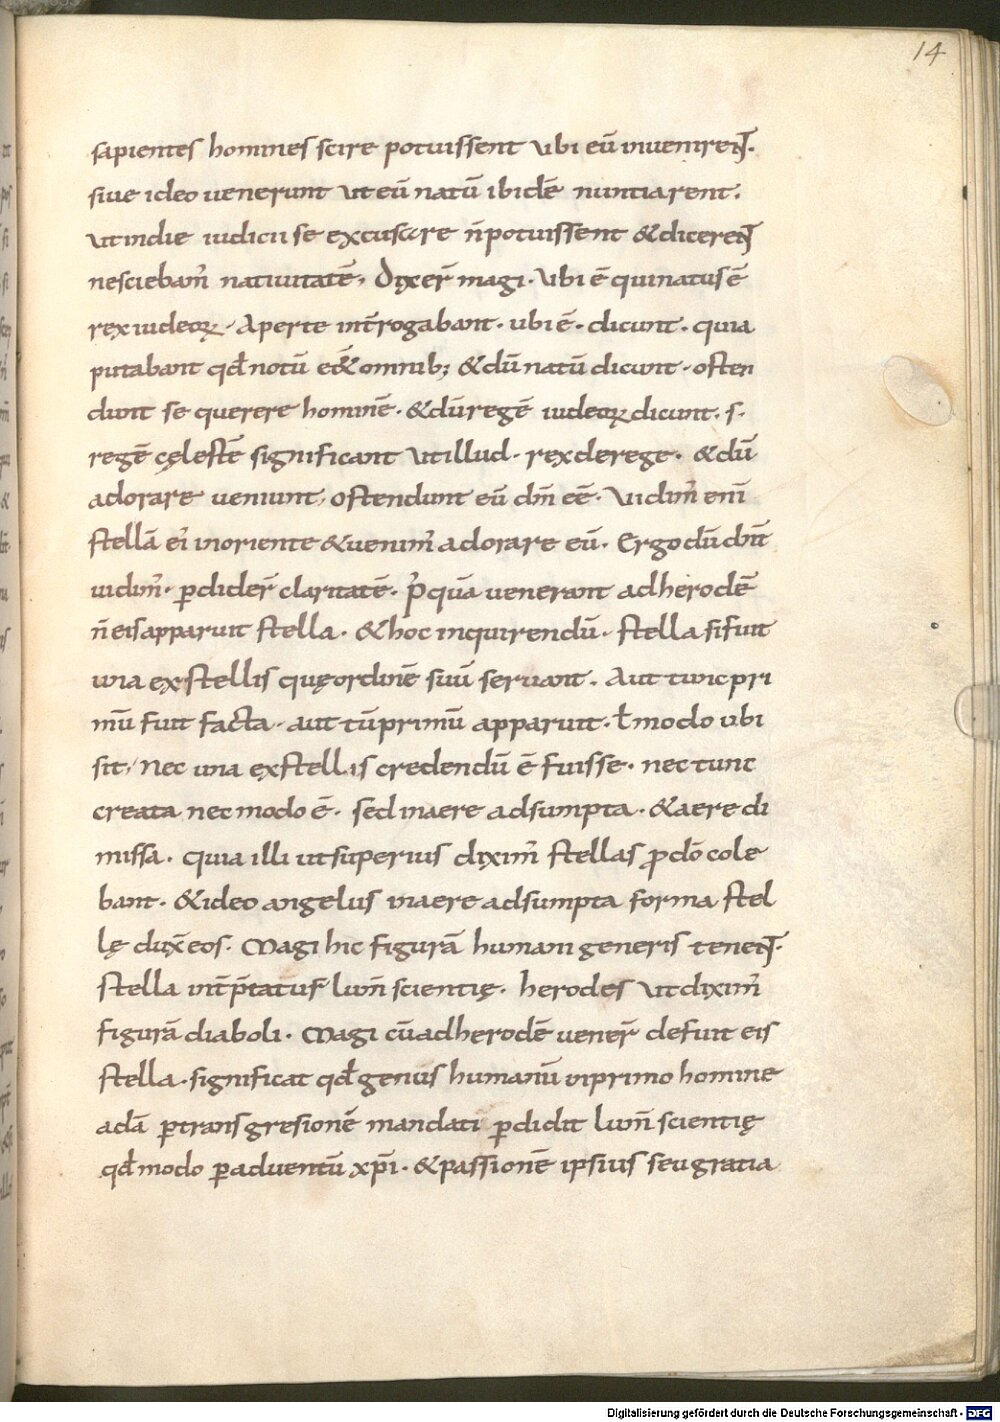 14
sapientes homines scire potuissent ubi eū invenirent.
sive ideo venerunt ut eū natū ibidē nuntiarent.
ut in die iudicii se excusare n̄ potuissent & dicerent
nesciebam̄ nativitatē. Dixer̄ magi. Ubi ē qui natus ē
rex iudeoꝝ. Aperte int̄rogabant. ubi ē. dicunt. quia
putabant qđ notū eēt omnib; & dū natū dicunt. osten
dunt se querere hominē. & dū regē iudeoꝝ dicunt. s.
regē cęlestē significant ut illud. rex de rege. & dū
adorare veniunt, ostendunt eū dn̄m eē. Vidim̄ eni
stellā ei' in oriente & venim' adorare eū. Ergo dū dn̄t
vidim'. ꝑdider̄ claritatē. P'quā venerant ad herodē
n̄ eis apparuit stella. & hoc inquirendū. stella si fuit
una ex stellis quę ordinē suū servant. Aut tunc pri
mū fuit facta. aut tū primū apparuit. ł modo ubi
sit, Nec una ex stellis credendū ē fuisse. nec tunc
creata nec modo ē. sed in aere adsumpta. & aere di
missa. quia illi ut superius dixim' stellas ꝓ dō cole
bant. & ideo angelus in aere adsumpta forma stel
lę dux̄ eos. Magi hic figurā humani generis tenent.
stella int̄p̄tatur lum̄ scientię. herodes ut dixim'
figurā diaboli. Magi cū ad herodē vener̄ defuit eis
stella. significat qđ genus humanū in primo homine
adā ꝑ transgresionē mandati ꝑdidit lum̄ scientię
qđ modo ꝑ adventū xp̄i. & passionē ipsius seu gratia
Digitalisierung gefördert durch die Deutsche Forschungsgemeinschaft - DFG